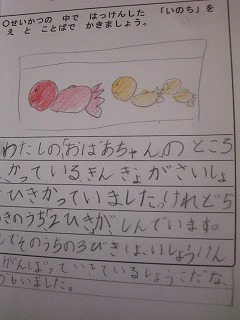 ○せいかつの 中で はっけんした 「いのち」を
え と ことばで かきましょう。
わたしの「おばあちゃん」の ところ
かっている きんぎょがさいしょ
ひきかっていました。けれど5
きのうち2ひきがしんでいます。
でそのうちの3びきは、いしょうけん
がんばっていきているしょうこだな、
おもいました。